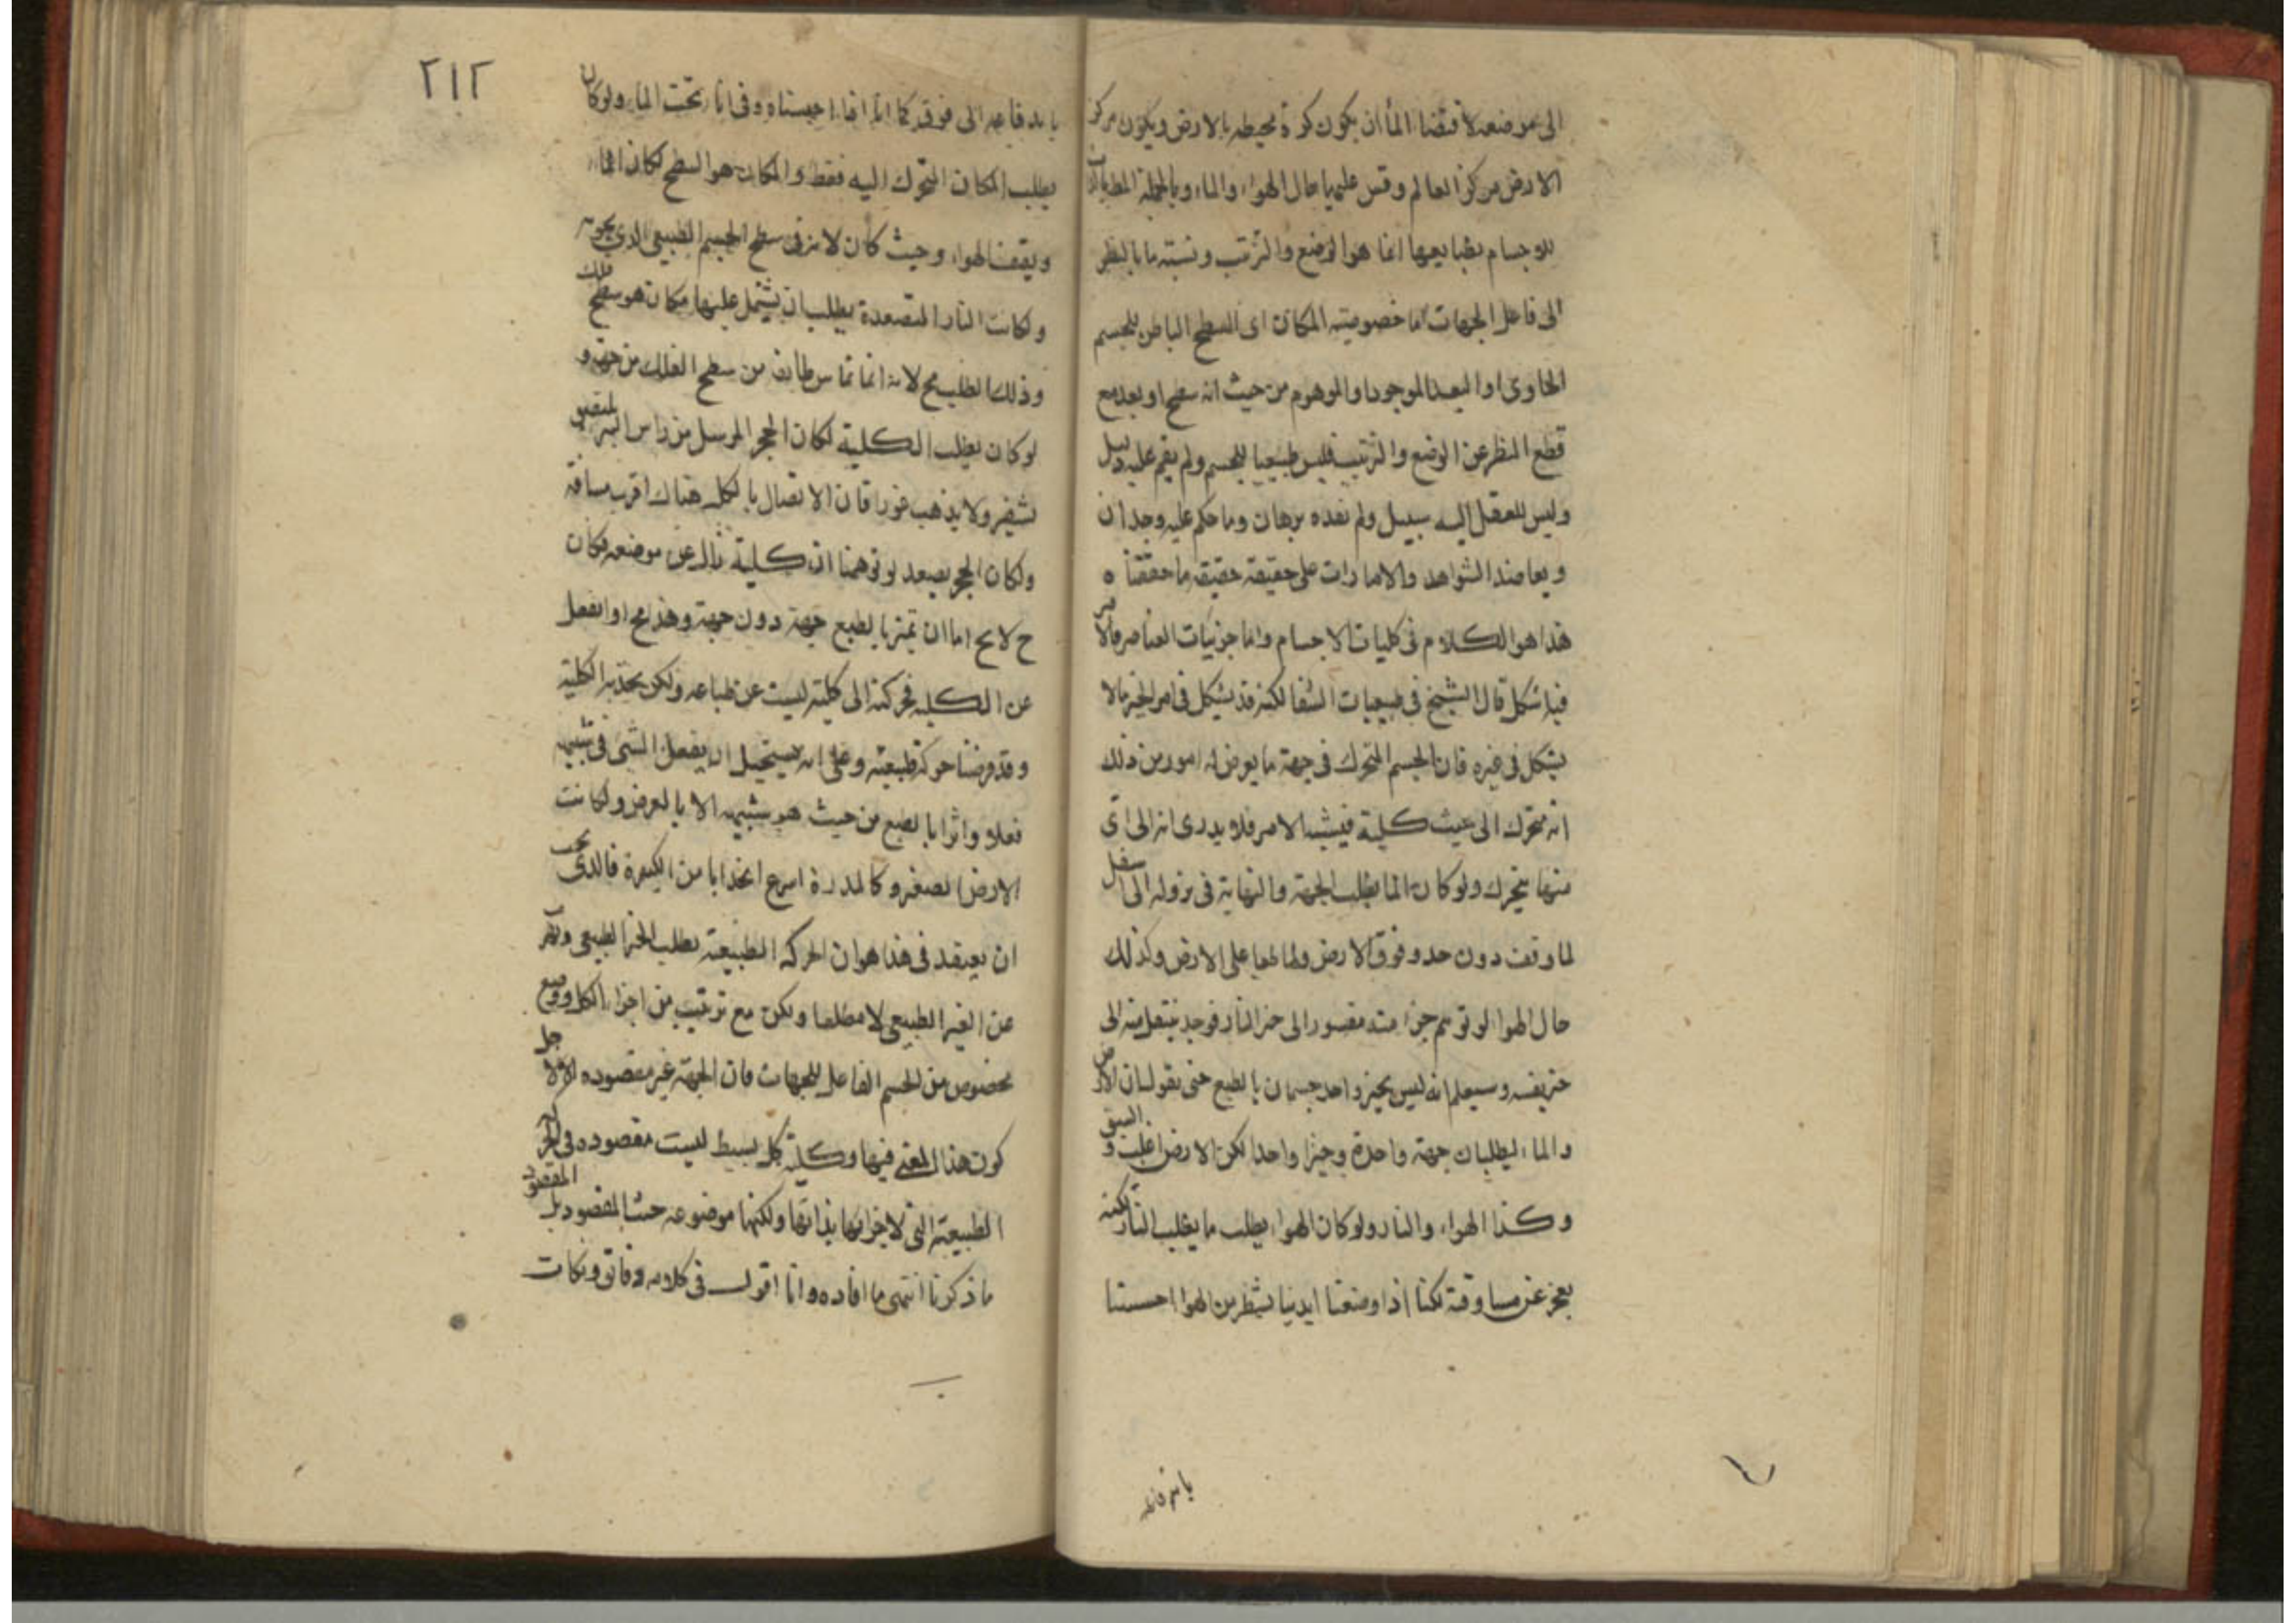 الى موضعه لاقتضا الماء ان يكون كرة محيطه بالارض ويكون مركز
الارض مركز العالم وقس عليها حال الهواء والماء وبالجملة المط بالذات
للاجسام بطبايعها انما هو الوضع والترتيب ونسبته ما بالنظر
الى فاعل الجهات اما خصوصيته المكان اى السطح الباطن للجسم
الحاوى او البعد الموجود او الموهوم من حيث انه سطح او بعد مع
قطع النظر عن الوضع والترتيب فليس طبيعيا للجسم ولم يقم عليه دليل
وليس للعقل اليه سبيل ولم يفده برهان وما حكم عليه وجدان
ويعاضد الشواهد والامارات على حقيقة حقيقه ما حققناه
هذا هو الكلام فى كليات الاجسام واما جزئيات العناصر فالامر
فيها شكل قال الشيخ فى طبيعيات الشفا لكنه قد يشكل فى امر الحيز مالا
يشكل فى غيره فان الجسم المتحرك فى جهة ما يعرض له امور من ذلك
انه متحرك الى حيث كلية فيشبه الامر فلا يدرى انه الى اى
منها يتحرك ولو كان انما يطلب الجهة والنهاية فى نزوله الى اسفل
لما وقف دون حد وفوق الارض ولما طفا على الارض وكذلك
حال الهوا لو توهم جزء منه مقسور الى حيز النار فوجد ينتقل منه الى
حيز نفسه وسيعلم انه ليس بحيز واحد جسمان بالطبع حتى يقول ان الارض
والماء يطلبان جهة واحدة وحيزا واحدا لكن الارض اغلب و اسبق
وكذا الهواء والنار ولو كان الهواء يطلب ما يطلب النار لكنه
يعجز عن مساوقة لكنا اذا وضعنا ايدينا بشطر من الهوا احسسنا
باندفاعه
٢١٢
باندفاعه الى فوق كما انا اذا حبسناه وفى اناء تحت الماء ولو كان
يطلب المكان المتحرك اليه فقط والمكان هو السطح لكان الماء
ويقف الهواء وحيث كان لانه فى سطح الجسم الطبيعى الذى يحويه
ولكانت النار المتصعدة يطلب ان يشتمل عليها مكان هو سطح فلك
وذلك الطلب مح لانه انما تماس طايفة من سطح الفلك من جهة و
لو كان يطلب الكلية لكان الحجر المرسل من راس البئر يلتصق
بشفيره ولا يذهب غورا فان الاتصال بالكل هناك اقرب مسافة
ولكان الحجر يصعد لو توهمنا ان كلية زال عن موضعه فكان
ح لا يخ اما ان تميز بالطبع جهة دون جهة وهذا مح او انفعل
عن الكلية فحركته الى كليته ليست عن طباعه ولكن بجذب الكلية
وقد فرضنا حركة طبيعته وعلى انه يستحيل ان يفعل الشى فى شبيهه
فعلا واثرا بالطبع من حيث هو شبيهه الا بالعرض ولكانت
الارض الصغيرة كالمدرة اسرع انجذابا من الكبيرة فالذى يجب
ان يعتقد فى هذا هو ان الحركه الطبيعة يطلب الحيز الطبيعى وتهرب
عن الغير الطبيعى لا مطلقا ولكن مع ترتيب من اجزاء الكل ووضع
مخصوص من الجسم الفاعل للجهات فان الجهة غير مقصوده الا لاجل
كون هذا المعنى فيها وكلية كل بسيط ليست مقصوده فى الحركة
الطبيعة التى لاجزائها بذاتها ولكنها موضوعه حيث المقصود بل المقصود
ما ذكرنا انتهى ما افاده وانا اقول فى كلامه دقائق ونكات